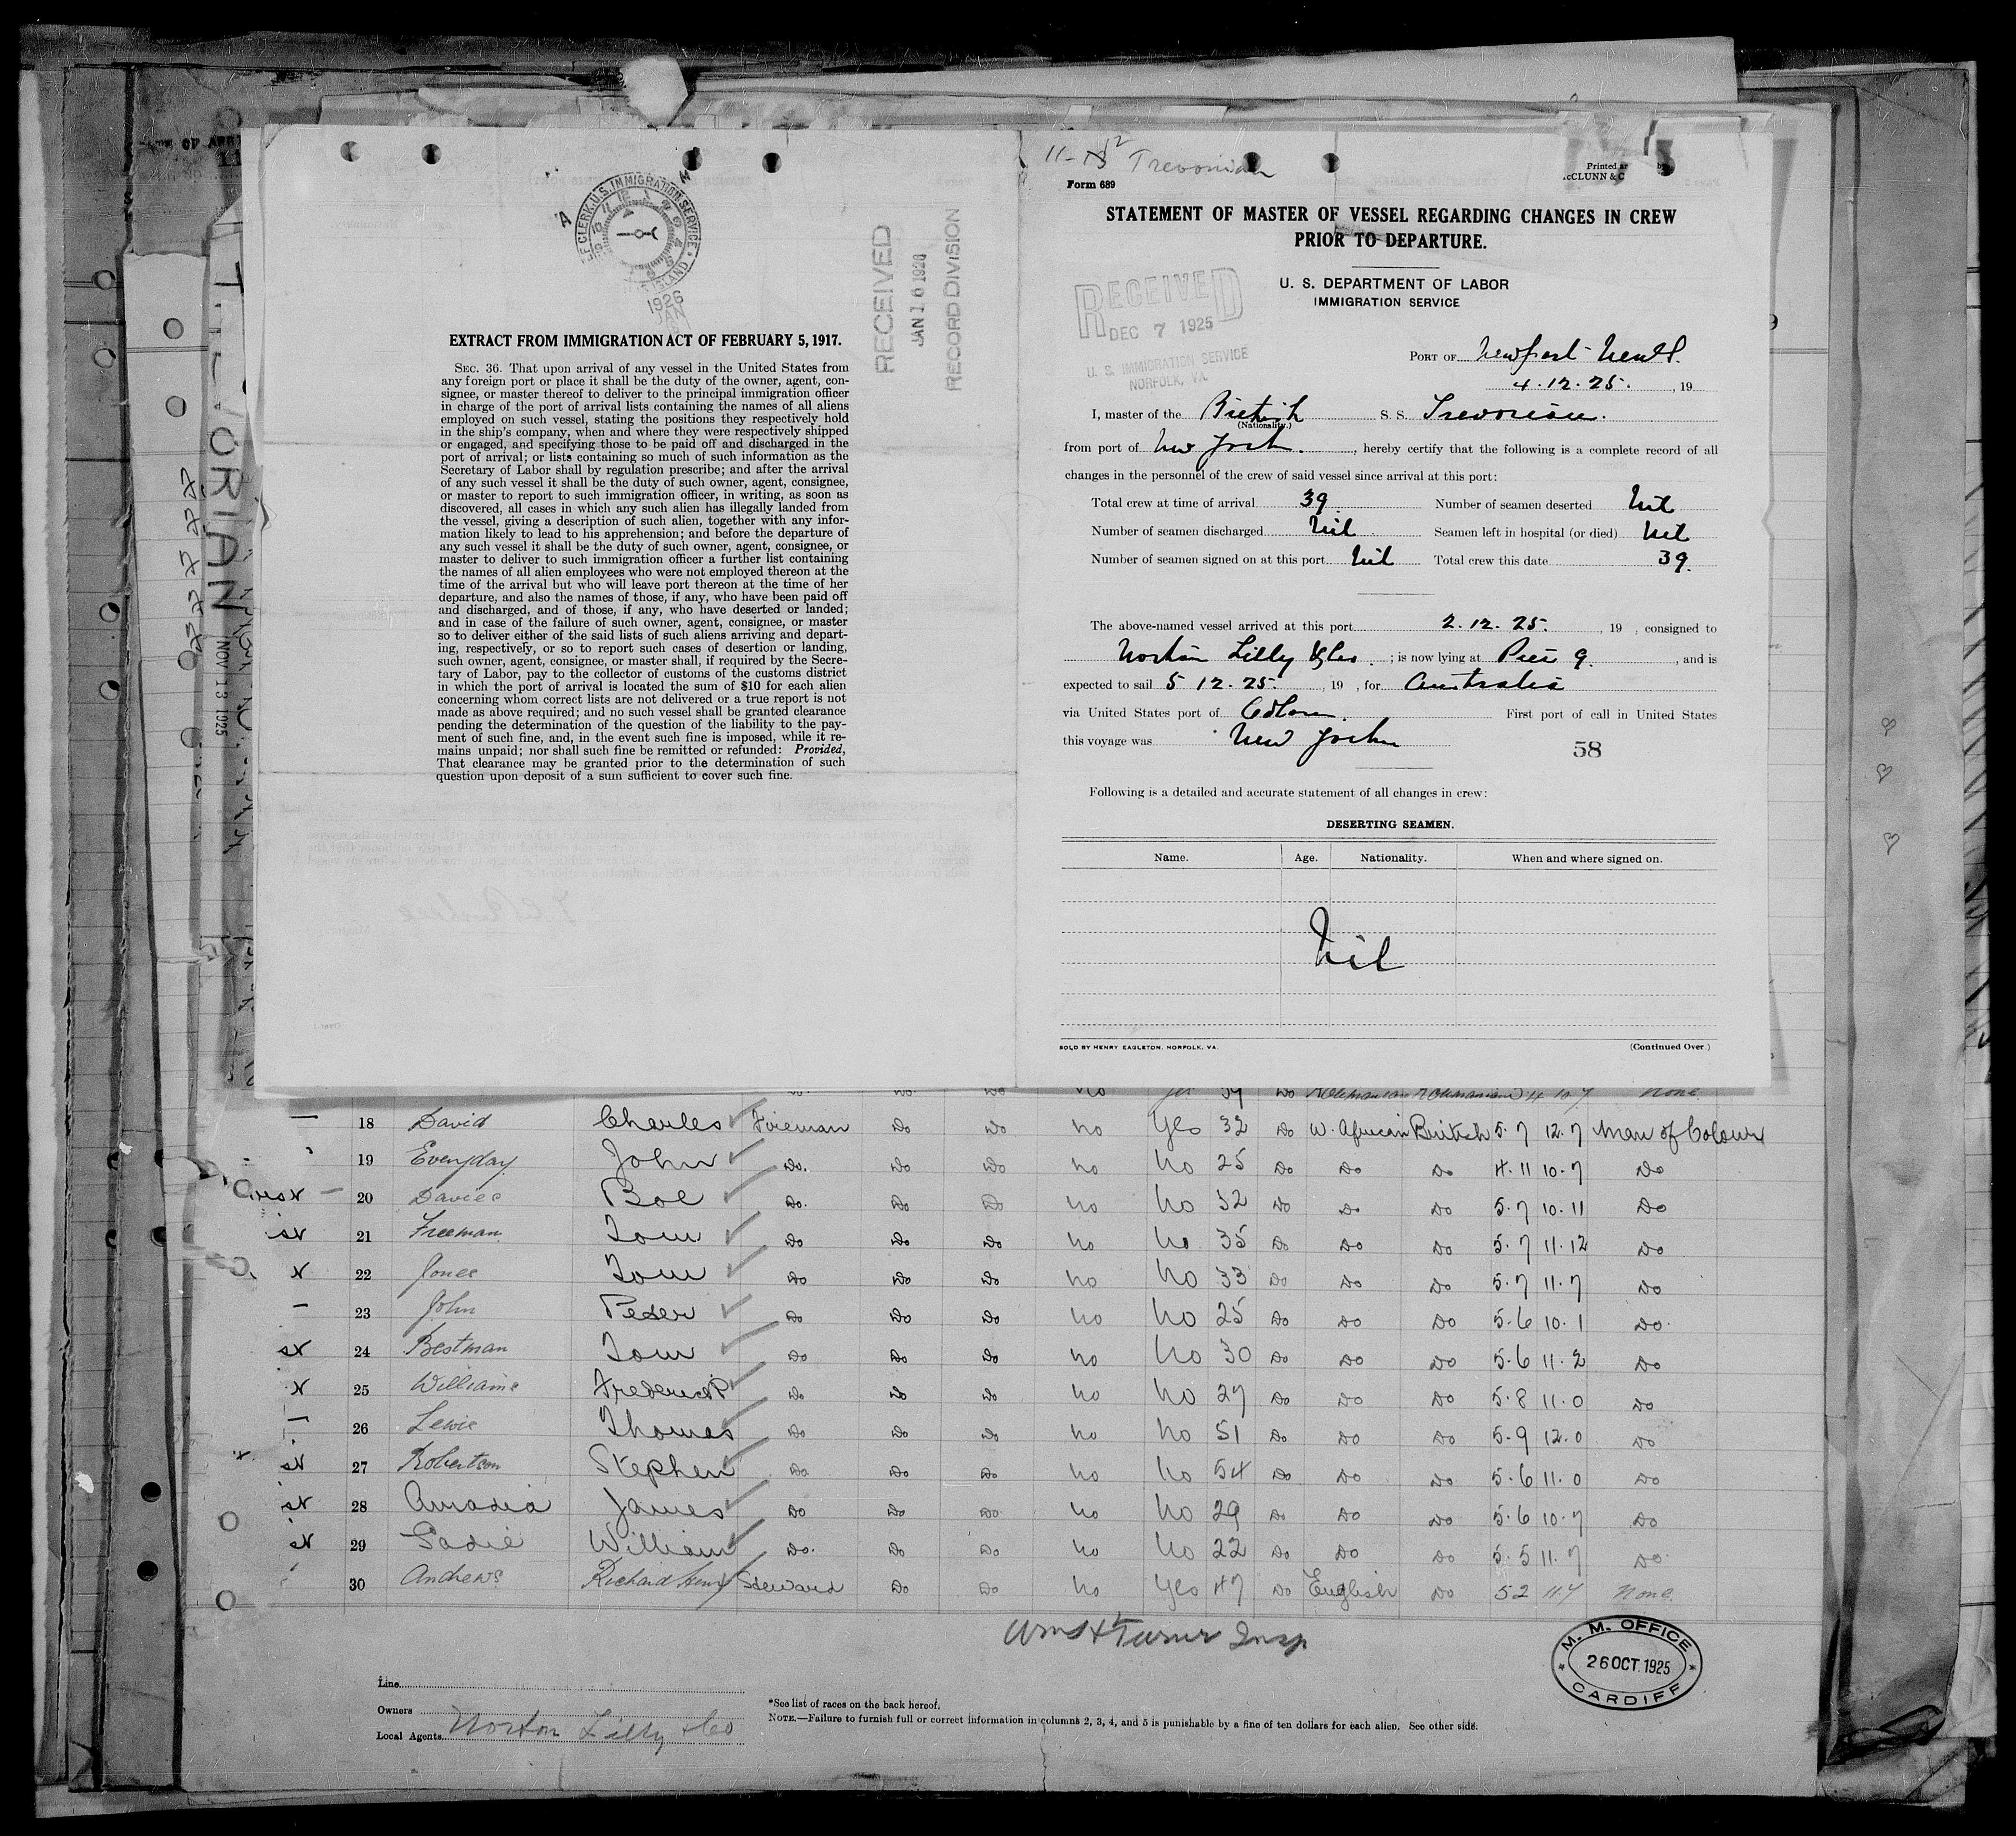 CLERK, U.S. IMMIGRATION SERVICE
1926
JAN
RECEIVED
JAN 16 1926
RECORD DIVISION
EXTRACT FROM IMMIGRATION ACT OF FEBRUARY 5, 1917.
SEC. 36. That upon arrival of any vessel in the United States from
any foreign port or place it shall be the duty of the owner, agent, con-
signee, or master thereof to deliver to the principal immigration officer
in charge of the port of arrival lists containing the names of all aliens
employed on such vessel, stating the positions they respectively hold
in the ship's company, when and where they were respectively shipped
or engaged, and specifying those to be paid off and discharged in the
port of arrival; or lists containing so much of such information as the
Secretary of Labor shall by regulation prescribe; and after the arrival
of any such vessel it shall be the duty of such owner, agent, consignee,
or master to report to such immigration officer, in writing, as soon as
discovered, all cases in which any such alien has illegally landed from
the vessel, giving a description of such alien, together with any infor-
mation likely to lead to his apprehension; and before the departure of
any such vessel it shall be the duty of such owner, agent, consignee, or
master to deliver to such immigration officer a further list containing
the names of all alien employees who were not employed thereon at the
time of the arrival but who will leave port thereon at the time of her
departure, and also the names of those, if any, who have been paid off
and discharged, and of those, if any, who have deserted or landed;
and in case of the failure of such owner, agent, consignee, or master
so to deliver either of the said lists of such aliens arriving and depart-
ing, respectively, or so to report such cases of desertion or landing,
such owner, agent, consignee, or master shall, if required by the Secre-
tary of Labor, pay to the collector of customs of the customs district
in which the port of arrival is located the sum of $10 for each alien
concerning whom correct lists are not delivered or a true report is not
made as above required; and no such vessel shall be granted clearance
pending the determination of the question of the liability to the pay-
ment of such fine, and, in the event such fine is imposed, while it re-
mains unpaid; nor shall such fine be remitted or refunded: Provided,
That clearance may be granted prior to the determination of such
question upon deposit of a sum sufficient to cover such fine.
NOV 13 1925
Trevorian
Form 689
Printed
STATEMENT OF MASTER OF VESSEL REGARDING CHANGES IN CREW
PRIOR TO DEPARTURE.
U. S. DEPARTMENT OF LABOR
IMMIGRATION SERVICE
RECEIVED
DEC 7 1925
U. S. IMMIGRATION SERVICE
NORFOLK, VA.
PORT OF Newport News.
4.12.25. , 19
I, master of the British S. S. Trevorian.
(Nationality.)
from port of New York. , hereby certify that the following is a complete record of all
changes in the personnel of the crew of said vessel since arrival at this port:
Total crew at time of arrival 39. Number of seamen deserted Nil
Number of seamen discharged Nil Seamen left in hospital (or died) Nil
Number of seamen signed on at this port Nil Total crew this date 39.
The above-named vessel arrived at this port 2.12.25. , 19 , consigned to
Norton Lilly & Co. ; is now lying at Pier 9. , and is
expected to sail 5 12.25. , 19 , for Australia
via United States port of Colon. First port of call in United States
this voyage was New York
58
Following is a detailed and accurate statement of all changes in crew:
DESERTING SEAMEN.
Name. Age. Nationality. When and where signed on.
Nil
SOLD BY HENRY EAGLETON, NORFOLK, VA. (Continued Over.)
18 David Charles Fireman Do Do No Yes 32 Do W. African British 5.7 12.7 Man of Colour
19 Everyday John Do. Do Do No No 25 Do Do Do 4.11 10.7 Do
20 Davies Boe Do. Do Do No No 32 Do Do Do 5.7 10.11 Do
21 Freeman Tom Do Do Do No No 35 Do Do Do 5.7 11.12 Do
22 Jones Tom Do Do Do No No 33 Do Do Do 5.7 11.7 Do
23 John Peter Do Do Do No No 25 Do Do Do 5.6 10.1 Do.
24 Bestman Tom Do Do Do No No 30 Do Do Do 5.6 11.2 Do
25 Williams Frederick Do Do Do No No 27 Do Do Do 5.8 11.0 Do
26 Lewis Thomas Do Do Do No No 51 Do Do Do 5.9 12.0 Do
27 Robertson Stephen Do Do Do No No 54 Do Do Do 5.6 11.0 Do
28 Amadia James Do Do Do No No 29 Do Do Do 5.6 10.7 Do
29 Sadie William Do. Do Do No No 22 Do Do Do 5.5 11.7 Do
30 Andrews Richard Henry Steward Do Do No Yes 47 Do English Do 5 2 11 7 None.
Turner Insp
M. M. OFFICE
26 OCT. 1925
CARDIFF
Line
Owners
Local Agents Norton Lilly & Co
*See list of races on the back hereof.
NOTE.—Failure to furnish full or correct information in columns 2, 3, 4, and 5 is punishable by a fine of ten dollars for each alien. See other side.